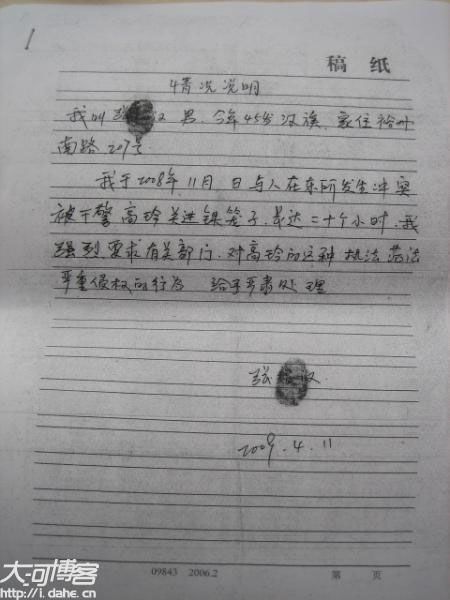 1
稿 纸
情况说明
我叫张 汉 男.今年45岁 汉族.家住裕州
南路207号
我于2008年.11月 日与人在东所发生冲突
被干警高玲关进铁笼子.长达二十个小时.我
强烈要求有关部门.对高玲的这种执法荡法
严重侵权的行为 给予严肃处理
张 汉
2009.4.11
09843 2006.2
第 页
大河博客
http://i.dahe.cn